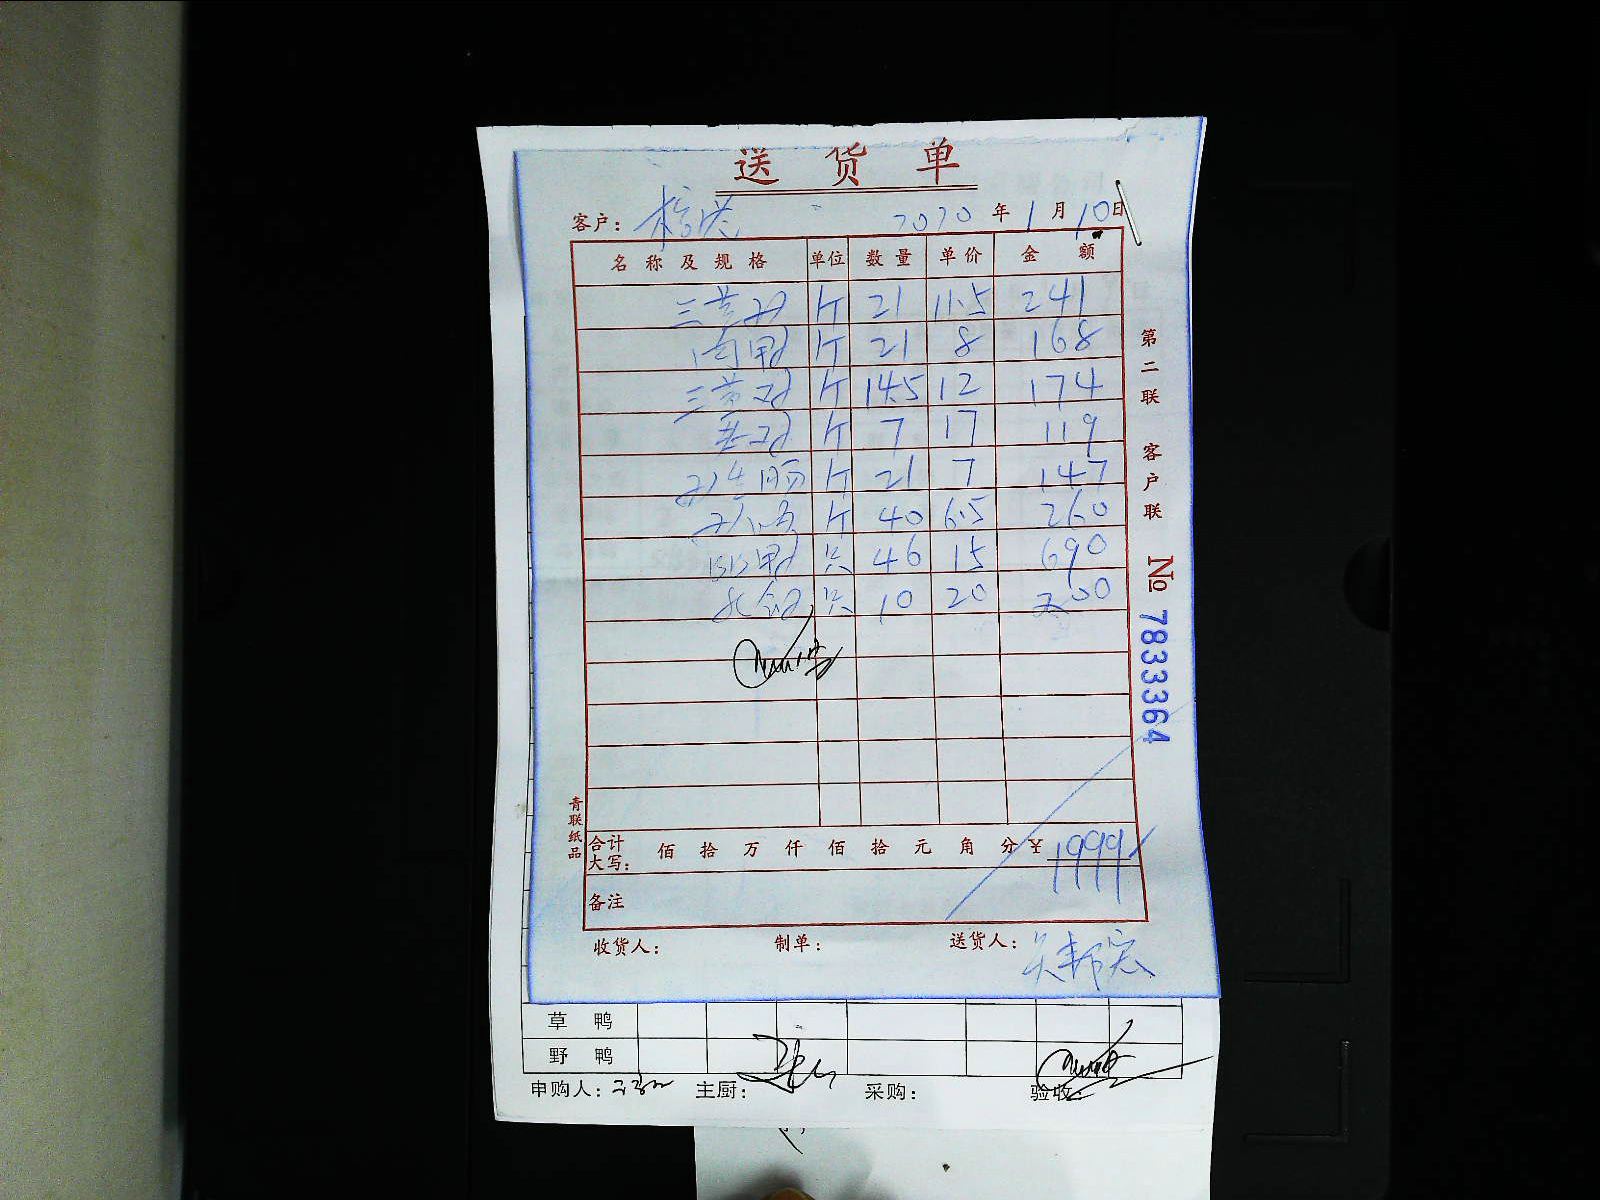 送 货 单
客户： 2020 年 1 月 10 日
名 称 及 规 格 单位 数量 单价 金 额
三黄鸡 斤 21 11.5 241
肉鸭 斤 21 8 168
三黄鸡 斤 14.5 12 174
斤 7 17 119
斤 21 7 147
斤 40 6.5 260
只 46 15 690
只 10 20 200
合计大写： 佰 拾 万 仟 佰 拾 元 角 分 ¥ 1999
备注
收货人： 制单： 送货人：
第二联 客户联
No 7833364
青联纸品
草 鸭
野 鸭
申购人： 主厨： 采购： 验收：